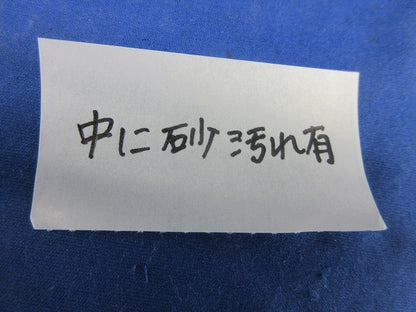 中に砂汚れ有